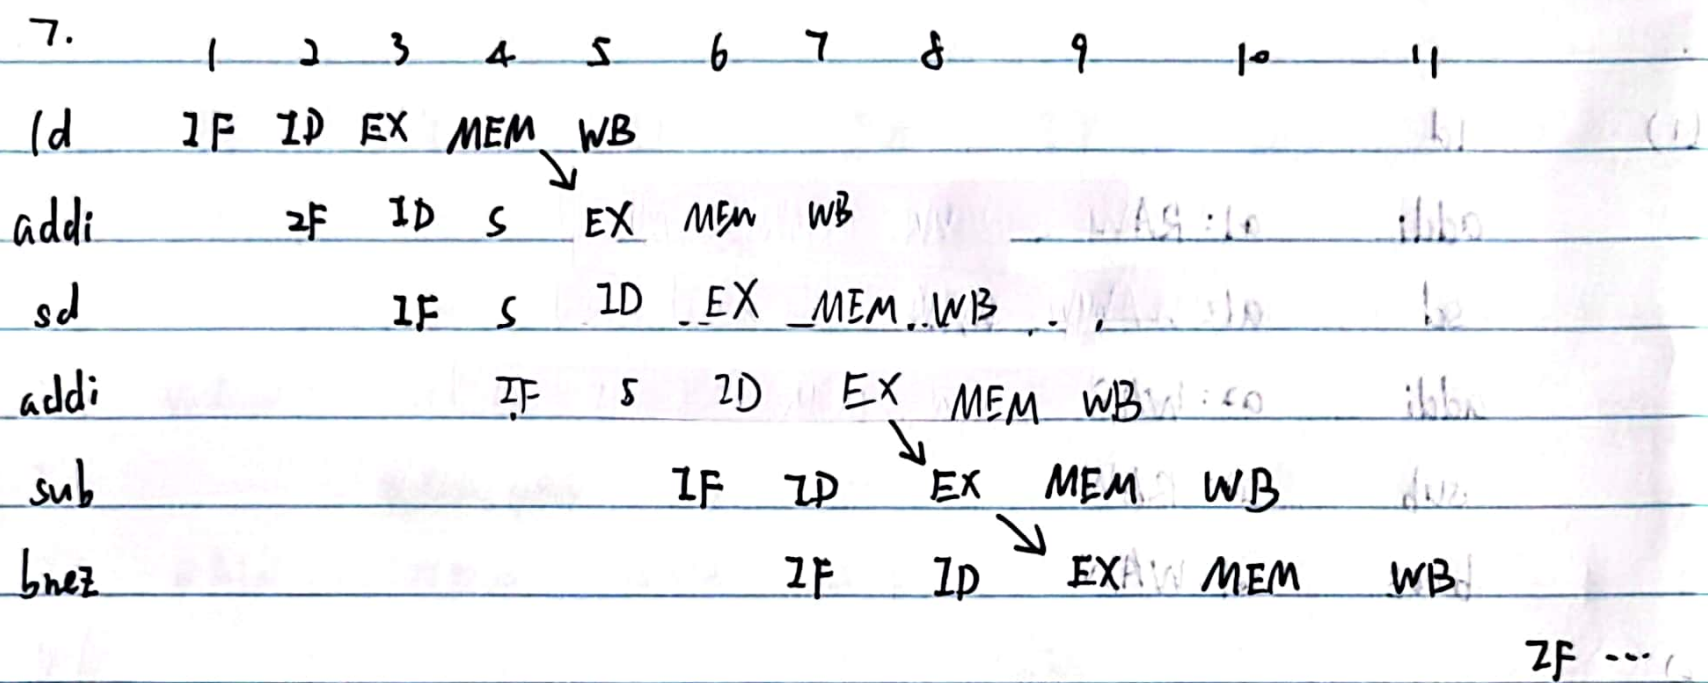 7. 1 2 3 4 5 6 7 8 9 10 11
ld IF ID EX MEM WB
addi IF ID S EX MEM WB
sd IF S ID EX MEM WB
addi IF S ID EX MEM WB
sub IF ID EX MEM WB
bnez IF ID EX MEM WB
IF ...